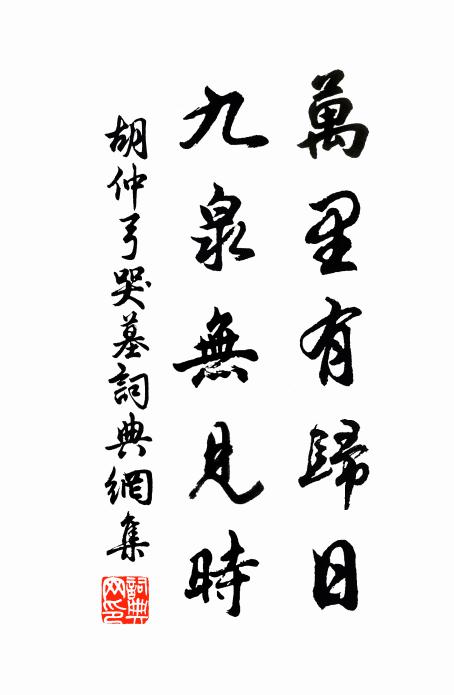 萬里有歸日
九泉無見時
胡仲弓哭墓詞典網集
詞典網印